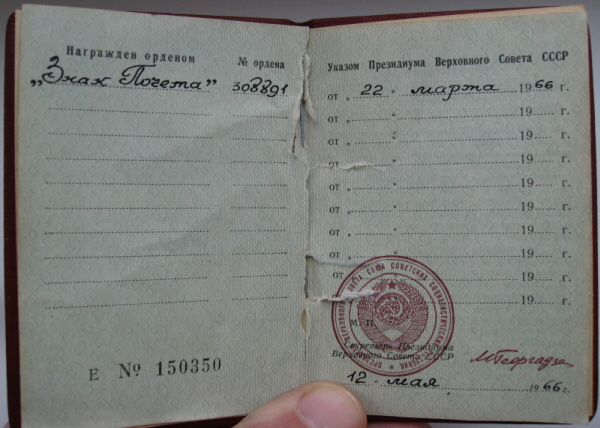 Награжден орденом
№ ордена
„Знак Почета”
308891
Е № 150350
Указом Президиума Верховного Совета СССР
от „ 22 " марта 1966 г.
от „ " 19 г.
от „ " 19 г.
от „ " 19 г.
от „ " 19 г.
от „ " 19 г.
от „ " 19 г.
от „ " 19 г.
от „ " 19 г.
от 19 г.
М. П.
Секретарь Президиума
Верховного Совета СССР
МГеоргадзе
12 мая 1966 г.